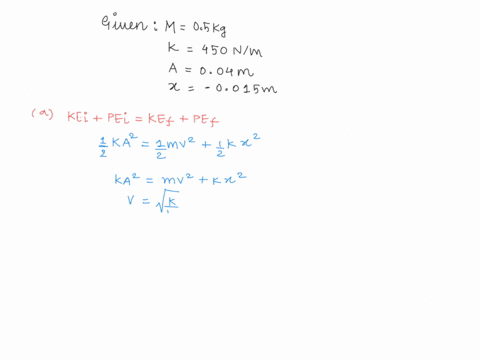 Given : M = 0.5kg
K = 450 N/m
A = 0.04m
x = - 0.015m
(a) KEi + PEi = KEf + PEf
1/2 KA² = 1/2 mv² + 1/2 K x²
KA² = mv² + K x²
V = √K